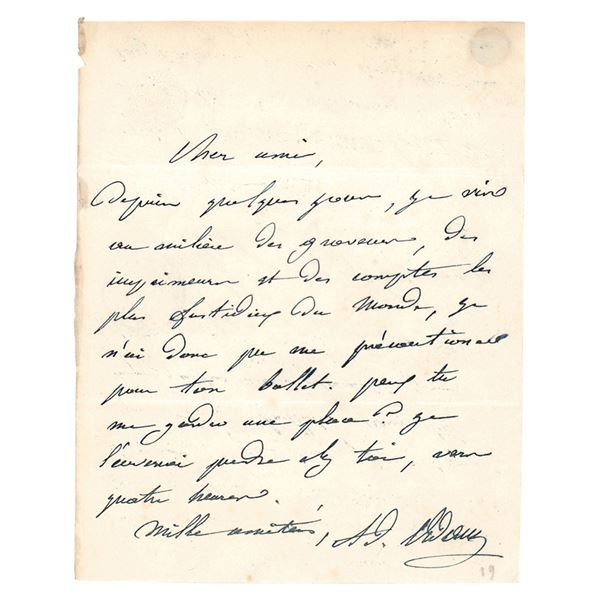 Cher ami,
Depuis quelques jours, je vis
au milieu des graveurs, des
imprimeurs et des comptes les
plus fastidieux du monde, je
n'ai donc pu me précautionner
pour ton ballet. peux tu
me garder une place? je
l'enverrai prendre chez toi, vers
quatre heures.
mille amitiés, Ad.
19